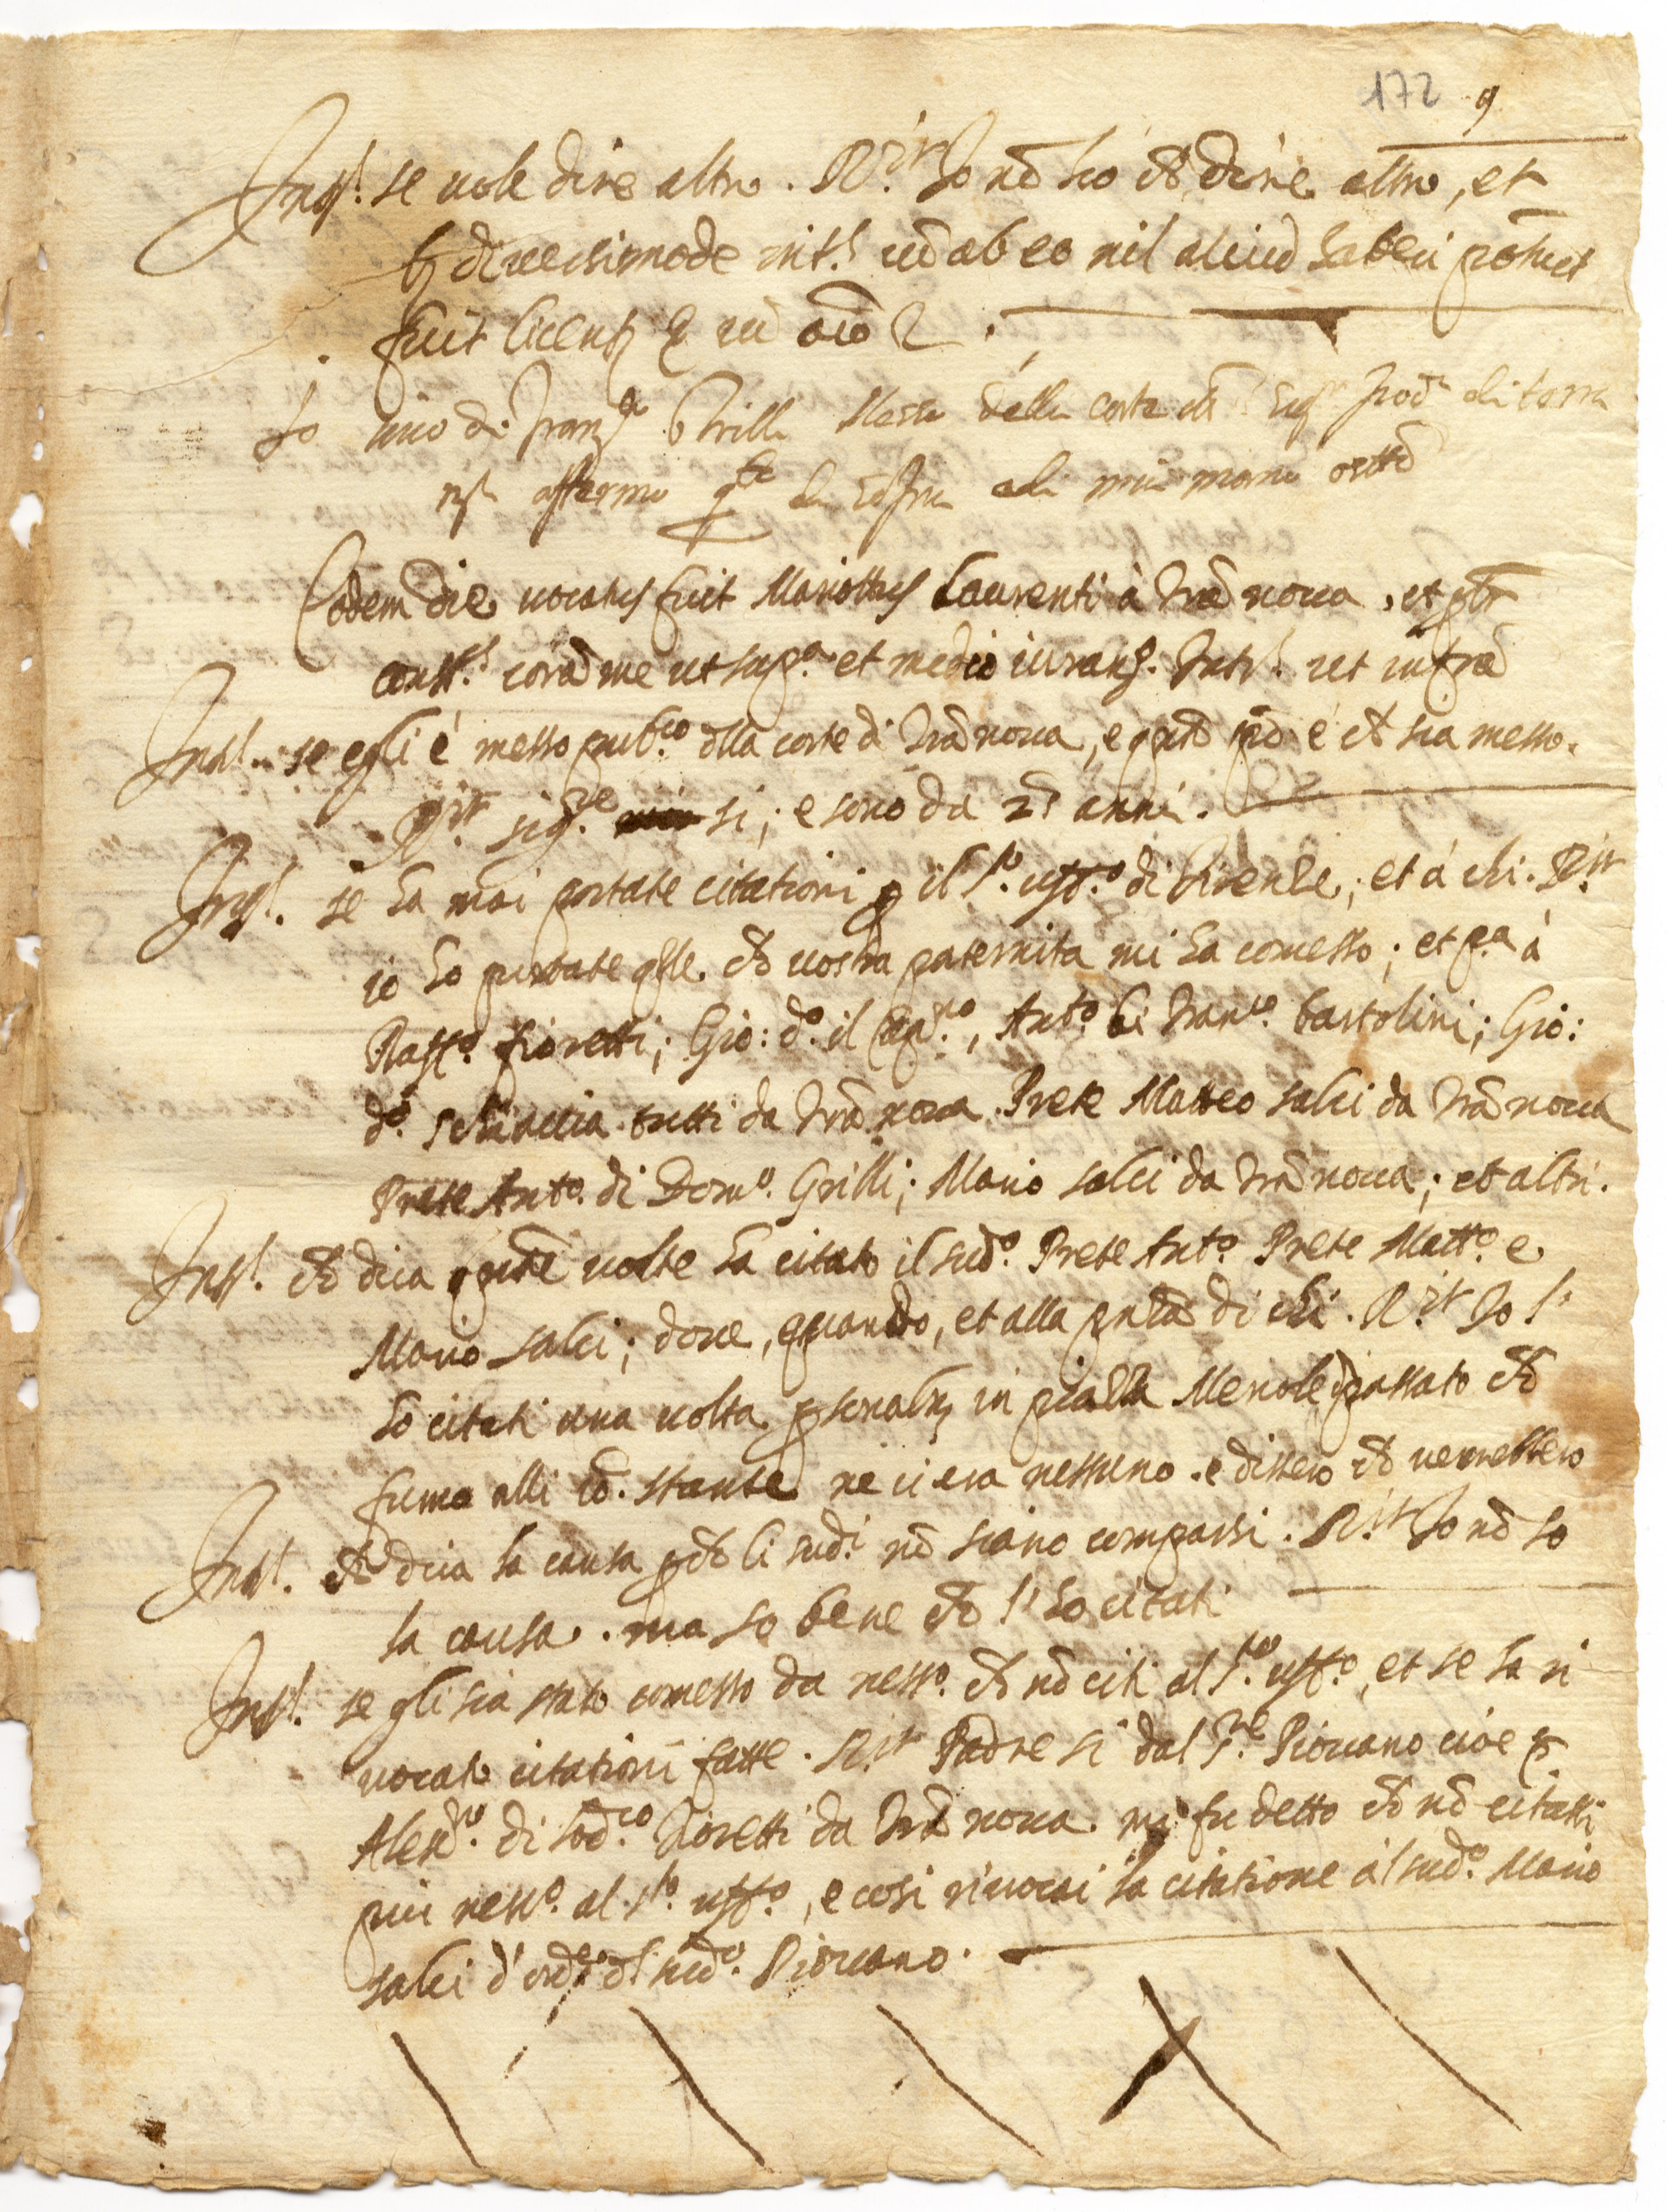 172 9
Intꝰ. se uole dire altro. R.it Io nō ho ch̄ dire altro, et
diuersimode int.s ut ab eo nil aliud haberi potuit
fuit licent. et
Io di Fran.co Grilli Messo della corte di terra
affermo q.to di mia mano
Eodem die uocatus fuit Mariottus Laurentij à Trā noua, et
const.s corā me ut sup.a et medio iuram. Int.s ut infrā
Int.s se egli è messo pub.co dlla corte di Trā noua, e quāto è ch̄ sia messo.
R.it sig.re si; e sono da 25 anni.
Int.s se ha mai portate citationi p il S.to uff.o di Firenze; et à chi. R.it
io ho portate q̄lle ch̄ uostra paternita mi ha comesso; et p.a à
Raff.o fioretti; Gio: d.o il Cap.no, Ant.o di Fran.co bartolini; Gio:
d.o tutti da Trā noua. Prete Matteo salci da Trā noua
Prete Ant.o di Dom.o Grilli; Mario salci da Trā noua; et altri.
Int.s ch̄ dica quāte uolte ha citato il sud.o Prete Ant.o Prete Matt.o e
Mario salci; doue, quando, et alla pñza di chi. R.it Io l'
ho citati una uolta in piazza Mercole passato ch̄
fumo alli ne ci era nessuno. e dissero ch̄ uerrebbero
Int.s ch̄ dica la causa pch̄ li sud.i nō siano comparsi. R.it Io nō so
la causa. ma so bene ch̄ l'ho citati
Int.s se gli sia stato comesso da ness.o ch̄ nō citi al S.to uff.o, et se ha ri
uocato citationi fatte. R.it Padre si dal S.re Piouano cioe p.
Aless.ro di Lod.co fioretti da Trā noua. mi fu detto ch̄ nō citassi
piu ness.o al S.to uff.o, e cosi riuocai la citatione al sud.o Mario
salci d'ord.e dl sud.o Piouano.